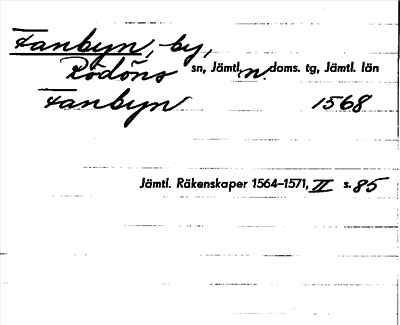 Fanbyn, by,
Rödöns sn, Jämtl. n. doms. tg, Jämtl. län
Fanbyn 1568
Jämtl. Räkenskaper 1564–1571, II s. 85